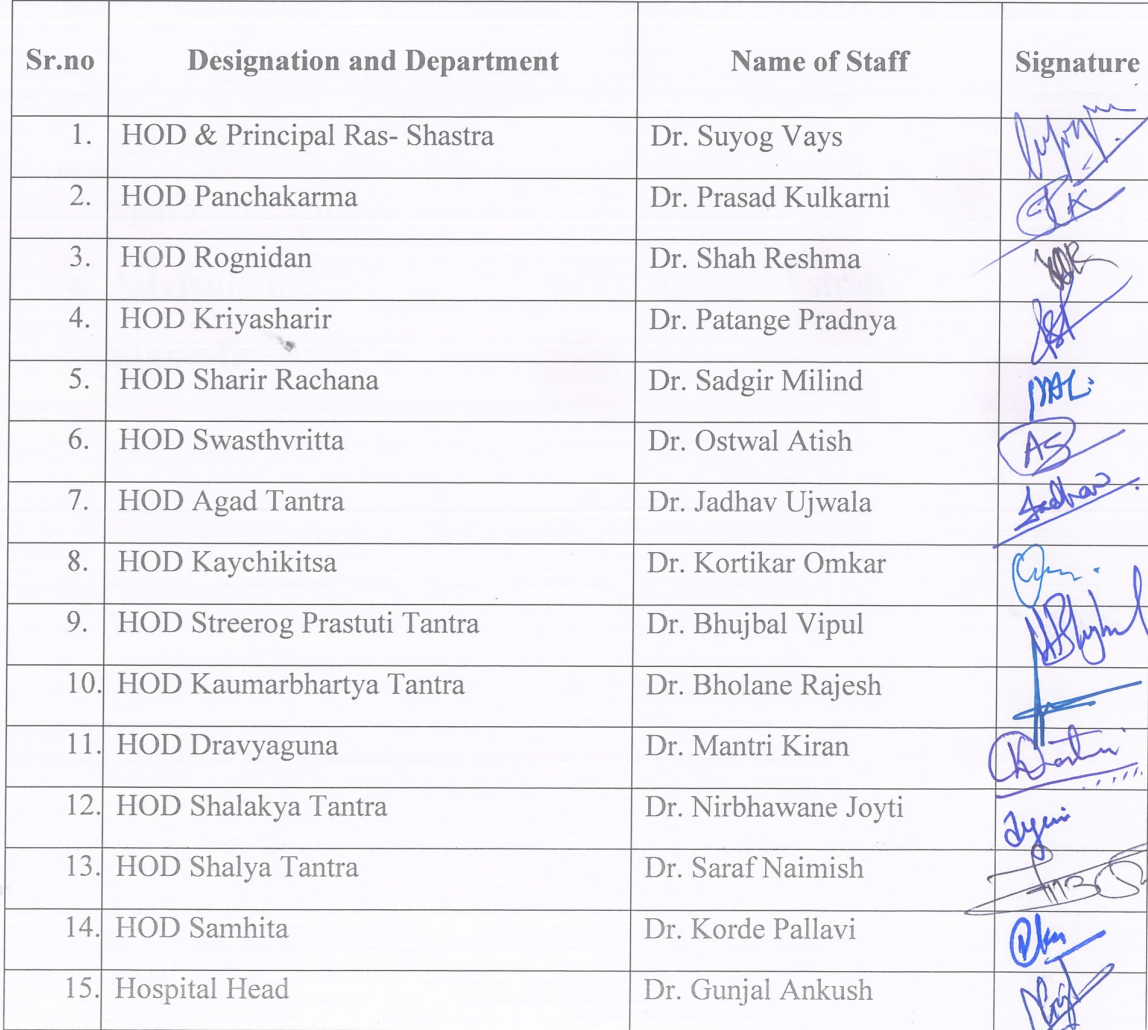 Sr.no Designation and Department Name of Staff Signature
1. HOD & Principal Ras- Shastra Dr. Suyog Vays
2. HOD Panchakarma Dr. Prasad Kulkarni
3. HOD Rognidan Dr. Shah Reshma
4. HOD Kriyasharir Dr. Patange Pradnya
5. HOD Sharir Rachana Dr. Sadgir Milind
6. HOD Swasthvritta Dr. Ostwal Atish AS
7. HOD Agad Tantra Dr. Jadhav Ujwala Jadhav
8. HOD Kaychikitsa Dr. Kortikar Omkar
9. HOD Streerog Prastuti Tantra Dr. Bhujbal Vipul
10. HOD Kaumarbhartya Tantra Dr. Bholane Rajesh
11. HOD Dravyaguna Dr. Mantri Kiran
12. HOD Shalakya Tantra Dr. Nirbhawane Joyti
13. HOD Shalya Tantra Dr. Saraf Naimish
14. HOD Samhita Dr. Korde Pallavi
15. Hospital Head Dr. Gunjal Ankush